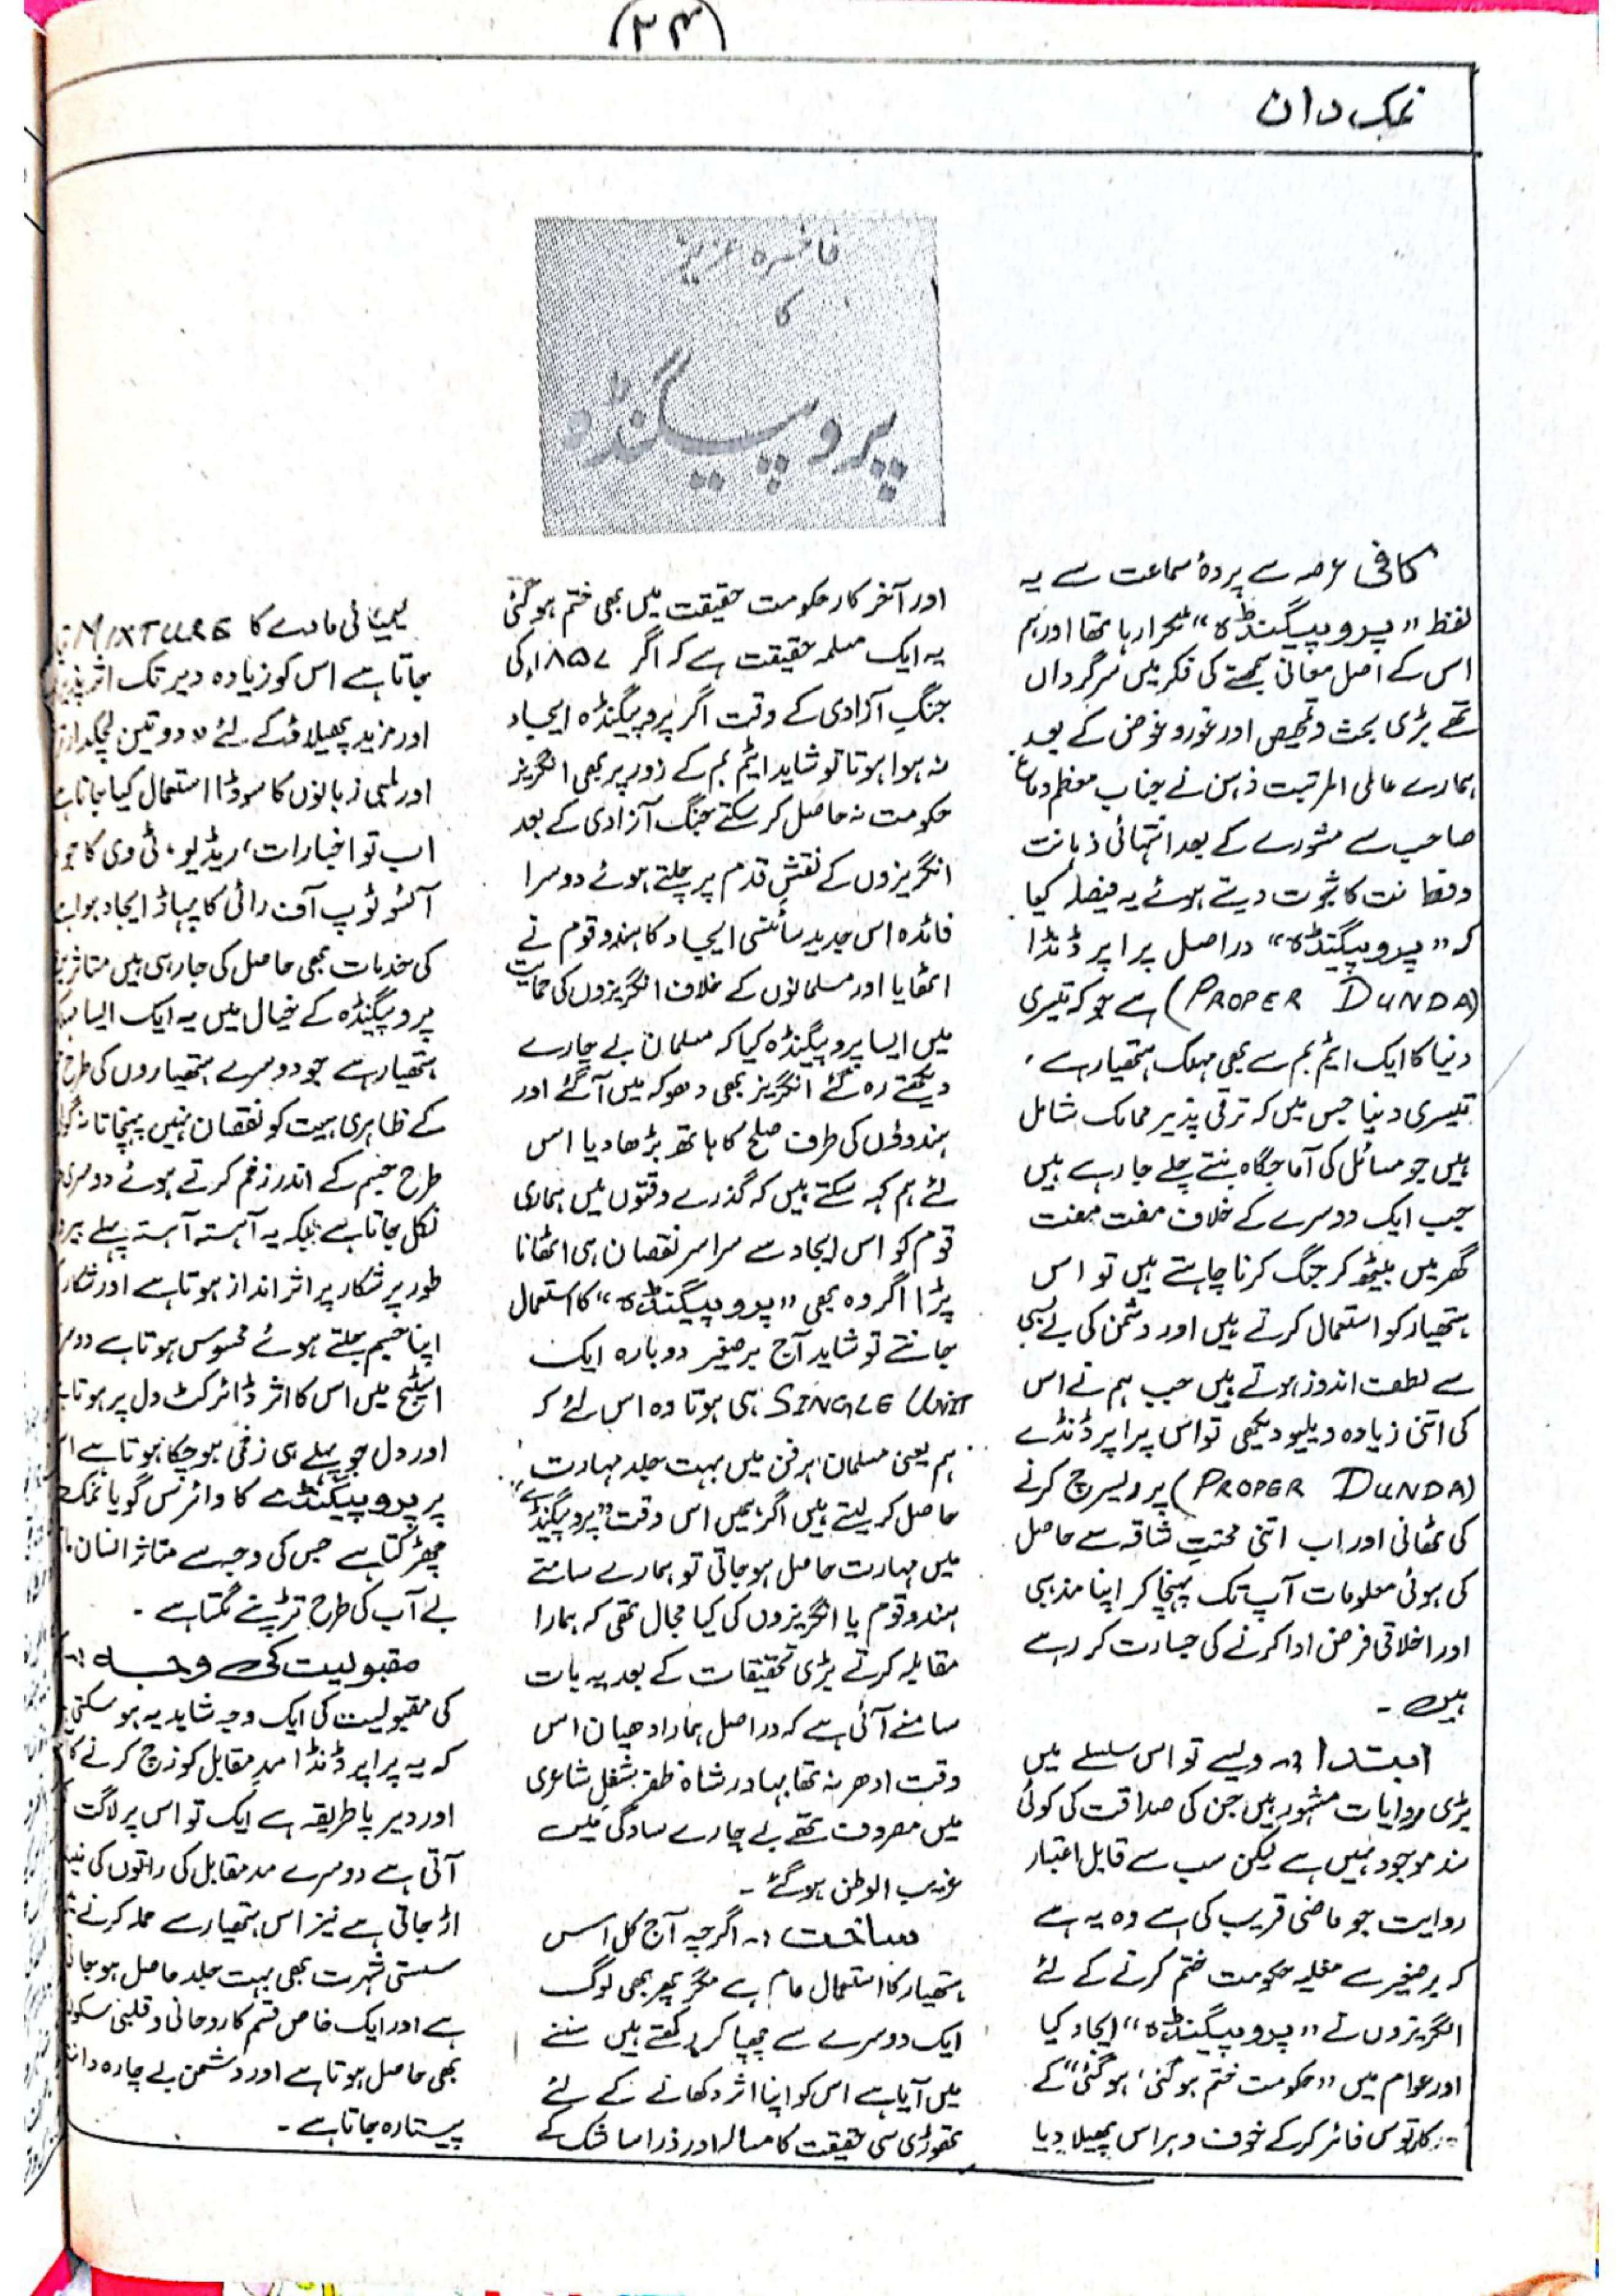 (۲۴)
نمک دان
فاخرہ عزیز
کا
پروپیگنڈہ
کافی عرصہ سے پردۂ سماعت سے یہ
لفظ "پروپیگنڈہ" ٹکرا رہا تھا اور ہم
اس کے اصل معانی سمجھنے کی فکر میں سرگرداں
تھے بڑی بحث و تمحیص اور غور و غوض کے بعد
ہمارے عالی المرتبت ذہن نے جناب معظم دماغ
صاحب سے مشورے کے بعد انتہائی ذہانت
وفطانت کا ثبوت دیتے ہوئے یہ فیصلہ کیا
کہ "پروپیگنڈہ" دراصل پراپر ڈنڈا
(PROPER DUNDA) ہے جو کہ تیسری
دنیا کا ایک ایٹم بم سے بھی مہلک ہتھیار ہے ،
تیسری دنیا جس میں کہ ترقی پذیر ممالک شامل
ہیں جو مسائل کی آماجگاہ بنتے چلے جا رہے ہیں
جب ایک دوسرے کے خلاف مفت مفت
گھر میں بیٹھ کر جنگ کرنا چاہتے ہیں تو اس
ہتھیار کو استعمال کرتے ہیں اور دشمن کی بے بسی
سے لطف اندوز ہوتے ہیں جب ہم نے اس
کی اتنی زیادہ ویلیو دیکھی تو اس پراپر ڈنڈے
(PROPER DUNDA) پر ریسرچ کرنے
کی ٹھانی اور اب اتنی محنتِ شاقہ سے حاصل
کی ہوئی معلومات آپ تک پہنچا کر اپنا مذہبی
اور اخلاقی فرض ادا کرنے کی جسارت کر رہے
ہیں ۔
ابتدا :۔ ویسے تو اس سلسلے میں
بڑی روایات مشہور ہیں جن کی صداقت کی کوئی
سند موجود نہیں ہے لیکن سب سے قابل اعتبار
روایت جو ماضی قریب کی ہے وہ یہ ہے
کہ برصغیر سے مغلیہ حکومت ختم کرنے کے لئے
انگریزوں نے "پروپیگنڈہ" ایجاد کیا
اور عوام میں "حکومت ختم ہو گئی، ہو گئی" کے
کارتوس فائر کر کے خوف و ہراس پھیلا دیا
اور آخر کار حکومت حقیقت میں بھی ختم ہو گئی
یہ ایک مسلمہ حقیقت ہے کہ اگر ۱۸۵۷ء کی
جنگِ آزادی کے وقت اگر پروپیگنڈہ ایجاد
نہ ہوا ہوتا تو شاید ایٹم بم کے زور پر بھی انگریز
حکومت نہ حاصل کر سکتے جنگ آزادی کے بعد
انگریزوں کے نقشِ قدم پر چلتے ہوئے دوسرا
فائدہ اس جدید سائنسی ایجاد کا ہندو قوم نے
اٹھایا اور مسلمانوں کے خلاف انگریزوں کی حمایت
میں ایسا پروپیگنڈہ کیا کہ مسلمان بے چارے
دیکھتے رہ گئے انگریز بھی دھوکہ میں آ گئے اور
ہندوؤں کی طرف صلح کا ہاتھ بڑھا دیا اس
لئے ہم کہہ سکتے ہیں کہ گذرے وقتوں میں ہماری
قوم کو اس ایجاد سے سراسر نقصان ہی اٹھانا
پڑا اگر وہ بھی "پروپیگنڈہ" کا استعمال
جانتے تو شاید آج برصغیر دوبارہ ایک
SINGLE UNIT ہی ہوتا وہ اس لئے کہ
ہم یعنی مسلمان ہر فن میں بہت جلد مہارت
حاصل کر لیتے ہیں اگر ہمیں اس وقت "پروپیگنڈے"
میں مہارت حاصل ہو جاتی تو ہمارے سامنے
ہندو قوم یا انگریزوں کی کیا مجال تھی کہ ہمارا
مقابلہ کرتے بڑی تحقیقات کے بعد یہ بات
سامنے آئی ہے کہ دراصل ہمارا دھیان اس
وقت ادھر نہ تھا بہادر شاہ ظفر بشغلِ شاعری
میں مصروف تھے بے چارے سادگی میں
غریب الوطن ہو گئے ۔
ساخت :۔ اگرچہ آج کل اس
ہتھیار کا استعمال عام ہے مگر پھر بھی لوگ
ایک دوسرے سے چھپا کر رکھتے ہیں سننے
میں آیا ہے اس کو اپنا اثر دکھانے کے لئے
تھوڑی سی حقیقت کا مسالہ اور ذرا سا شک کے
کیمیائی مادے کا MIXTURE
جاتا ہے اس کو زیادہ دیر تک اثر پذیر
اور مزید پھیلاؤ کے لئے دو تین لچکدار
اور لمبی زبانوں کا سوڈا استعمال کیا جاتا ہے
اب تو اخبارات، ریڈیو، ٹی وی کا جو
آئسوٹوپ آف رائی کا پہاڑ ایجاد ہوا ہے
کی خدمات بھی حاصل کی جا رہی ہیں متاثرین
پروپیگنڈہ کے خیال میں یہ ایک ایسا
ہتھیار ہے جو دوسرے ہتھیاروں کی طرح
کے ظاہری ہیت کو نقصان نہیں پہنچاتا نہ گولی
طرح جسم کے اندر زخم کرتے ہوئے دوسری
نکل جاتا ہے بلکہ یہ آہستہ آہستہ پہلے
طور پر شکار پر اثر انداز ہوتا ہے اور شکار
اپنا جسم جلتے ہوئے محسوس ہوتا ہے
اسٹیج میں اس کا اثر ڈائرکٹ دل پر ہوتا ہے
اور دل جو پہلے ہی زخمی ہو چکا ہوتا ہے
پر پروپیگنڈے کا وائرس گویا نمک
چھڑکتا ہے جس کی وجہ سے متاثر انسان
بے آب کی طرح تڑپنے لگتا ہے ۔
مقبولیت کی وجہ :۔
کی مقبولیت کی ایک وجہ شاید یہ ہو سکتی
کہ یہ پراپر ڈنڈا مدِ مقابل کو زچ کرنے کا
اور دیرپا طریقہ ہے ایک تو اس پر لاگت
آتی ہے دوسرے مد مقابل کی راتوں کی نیند
اڑ جاتی ہے نیز اس ہتھیار سے حملہ کرنے
سستی شہرت بھی بہت جلد حاصل ہو جاتی
ہے اور ایک خاص قسم کا روحانی و قلبی سکون
بھی حاصل ہوتا ہے اور دشمن بے چارہ دانت
پیستا رہ جاتا ہے ۔